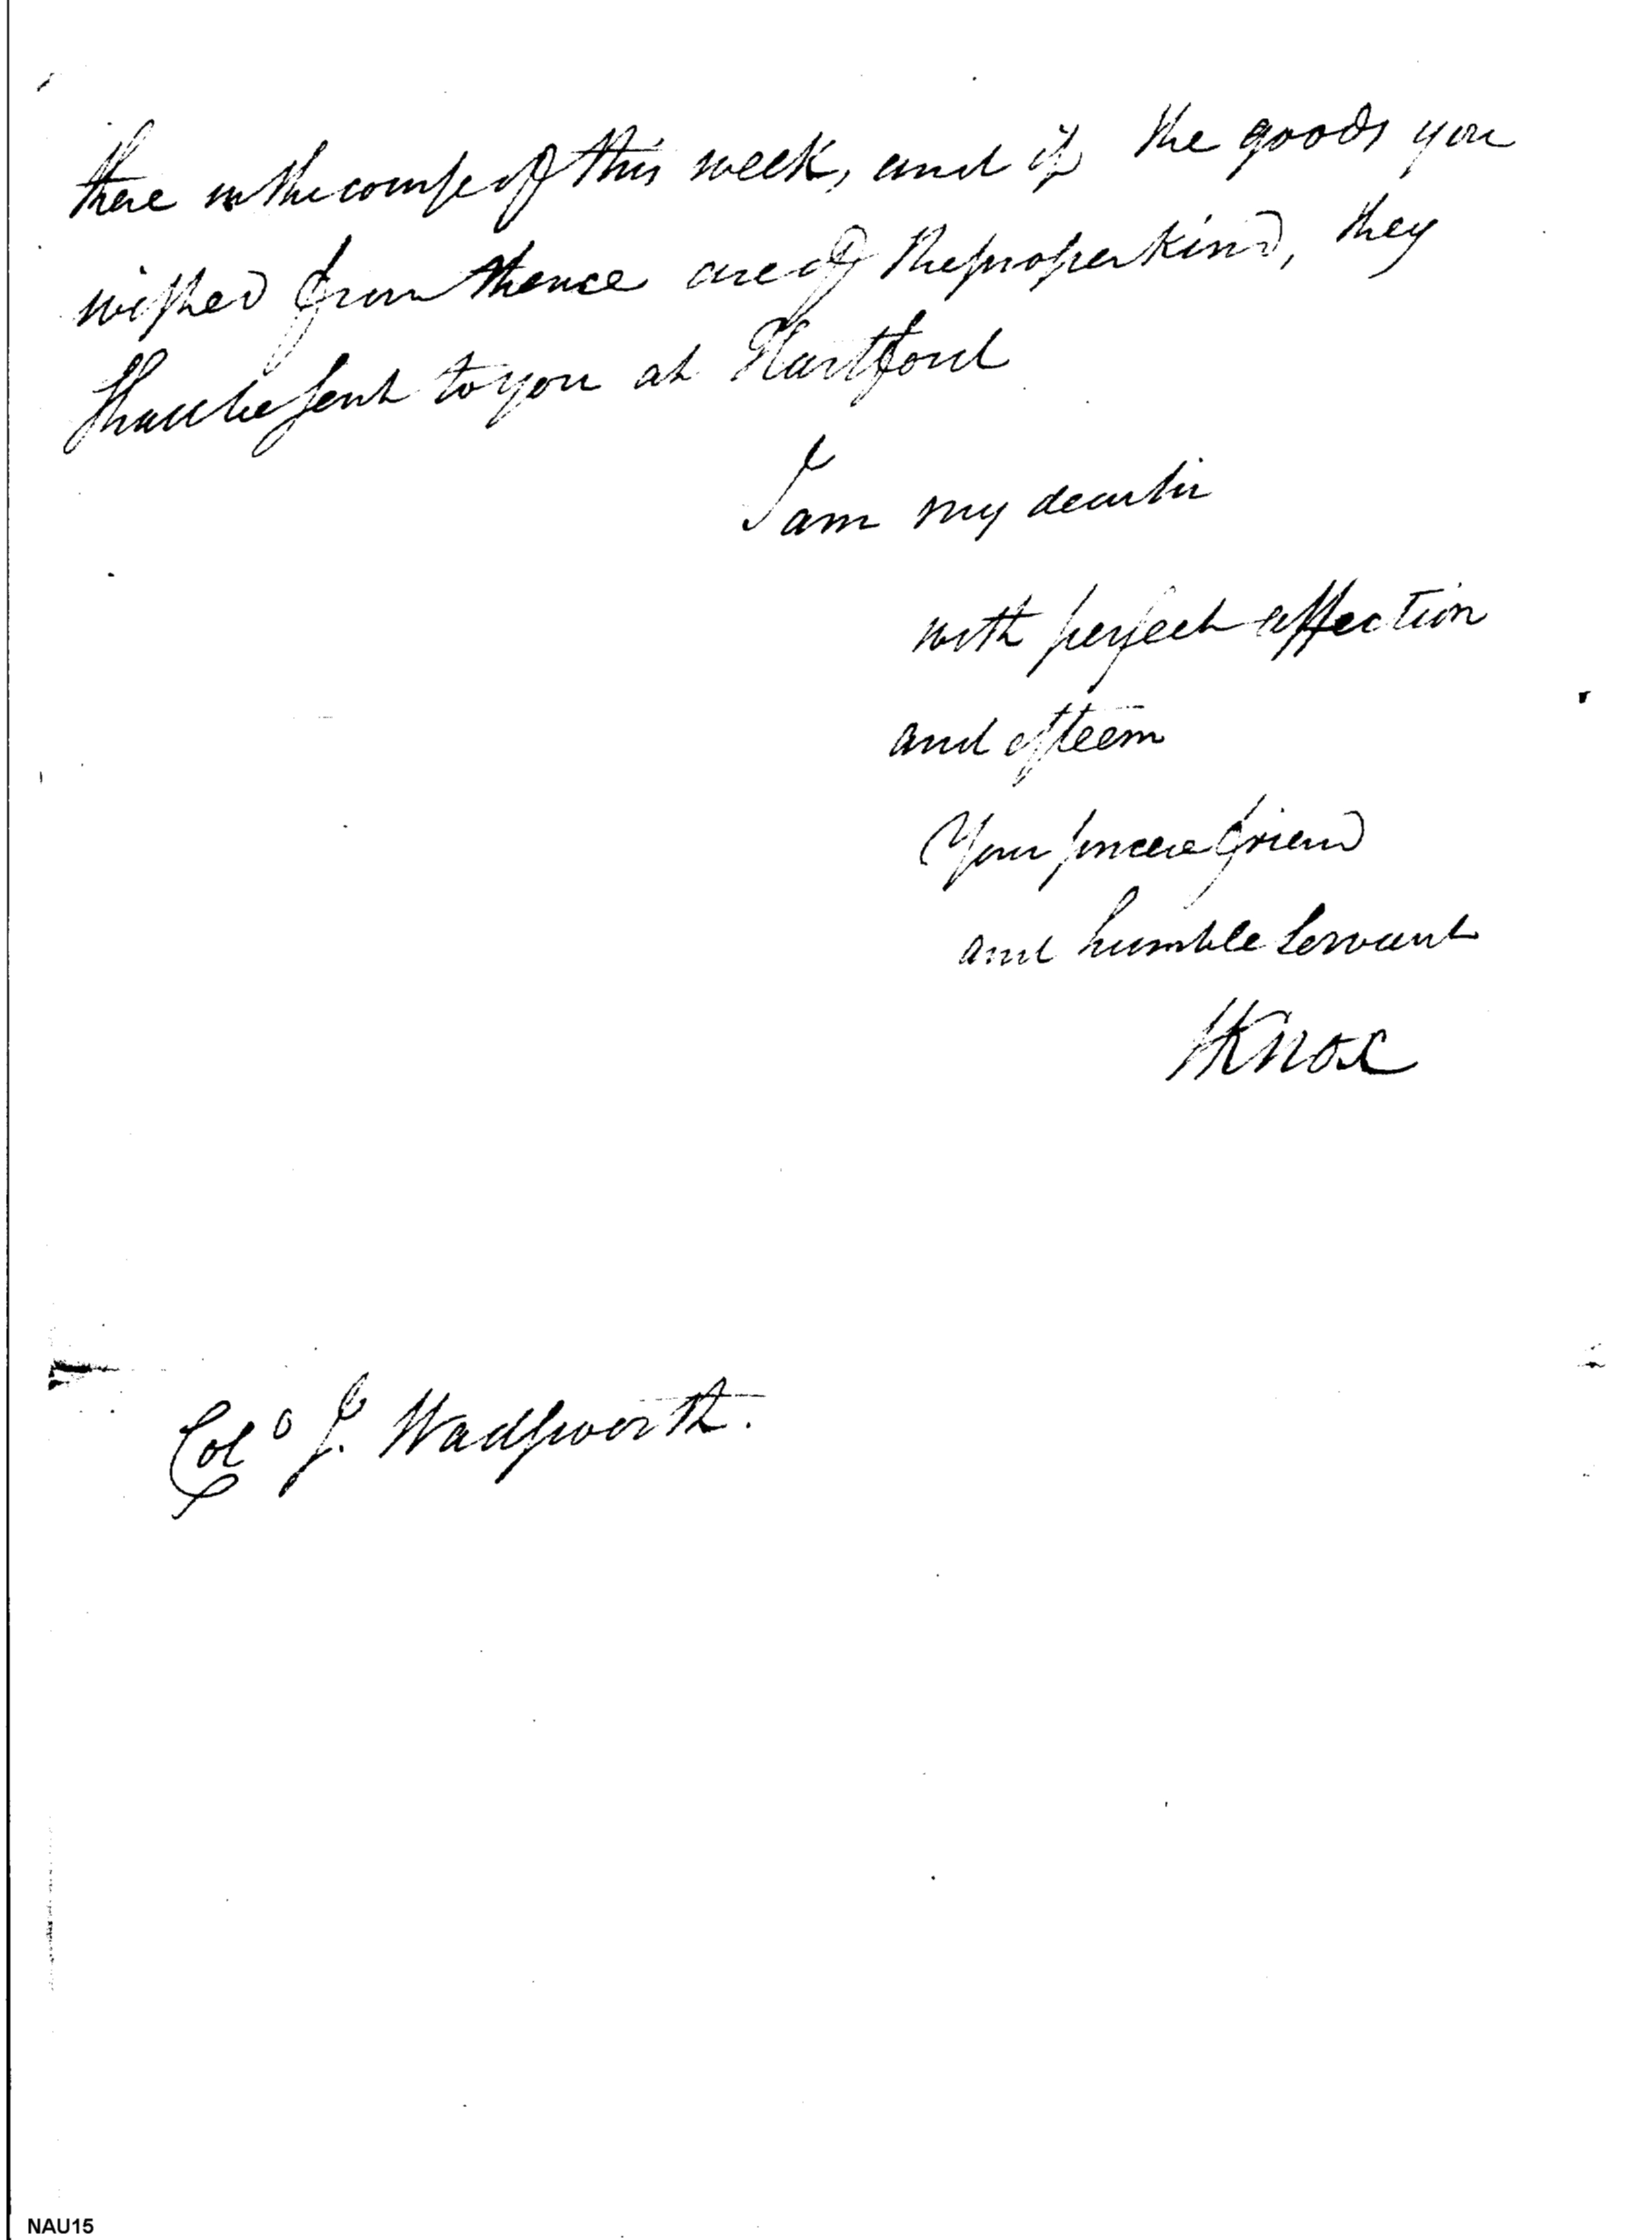 there in the course of this week, and if the goods you
wished from thence are of the proper kind, they
shall be sent to you at Hartford
I am my dear sir
with perfect affection
and esteem
Your sincere friend
and humble Servant
HKnox
Colo J. Wadsworth.
NAU15